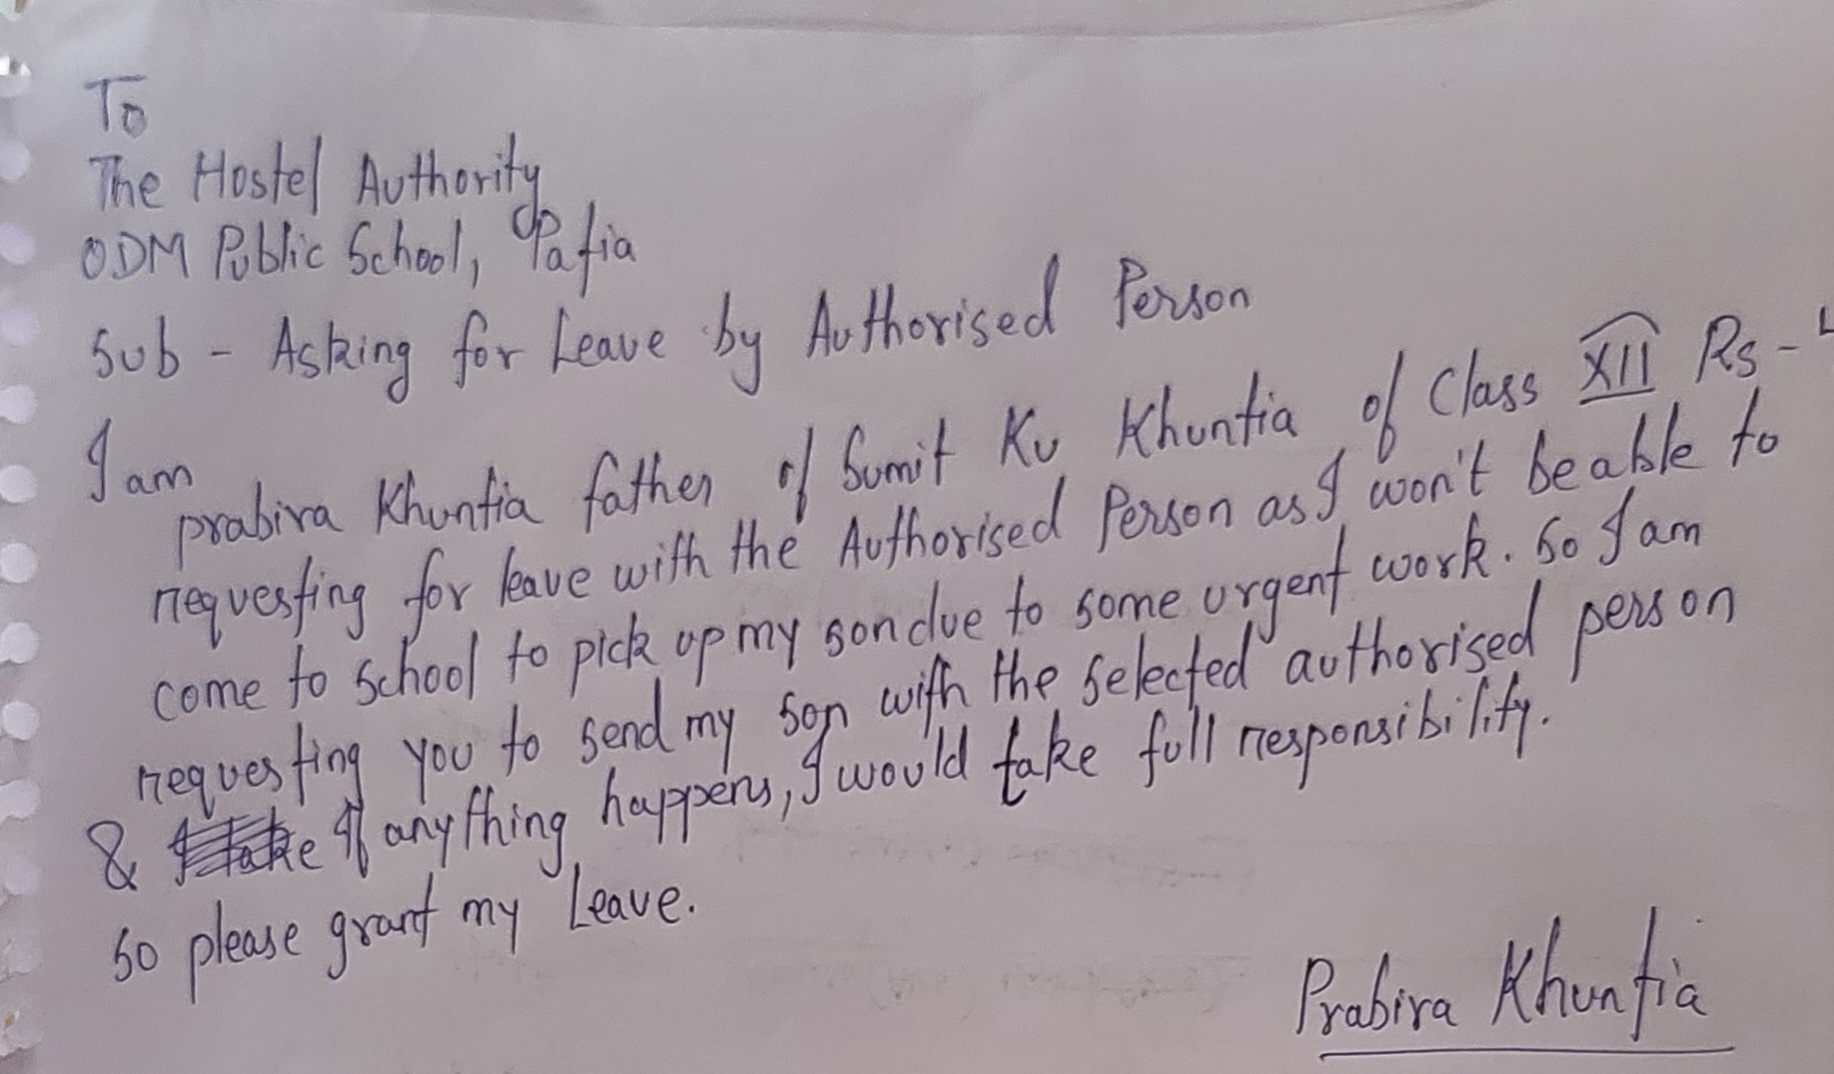 To
The Hostel Authority
ODM Public School, Patia
Sub - Asking for Leave by Authorised Person
I am prabira Khuntia father of Sumit Ku Khuntia of Class XII Rs -
requesting for leave with the Authorised Person as I won't be able to
come to school to pick up my son due to some urgent work. So I am
requesting you to send my son with the selected authorised person
& If anything happens, I would take full responsibility.
So please grant my Leave.
Prabira Khuntia